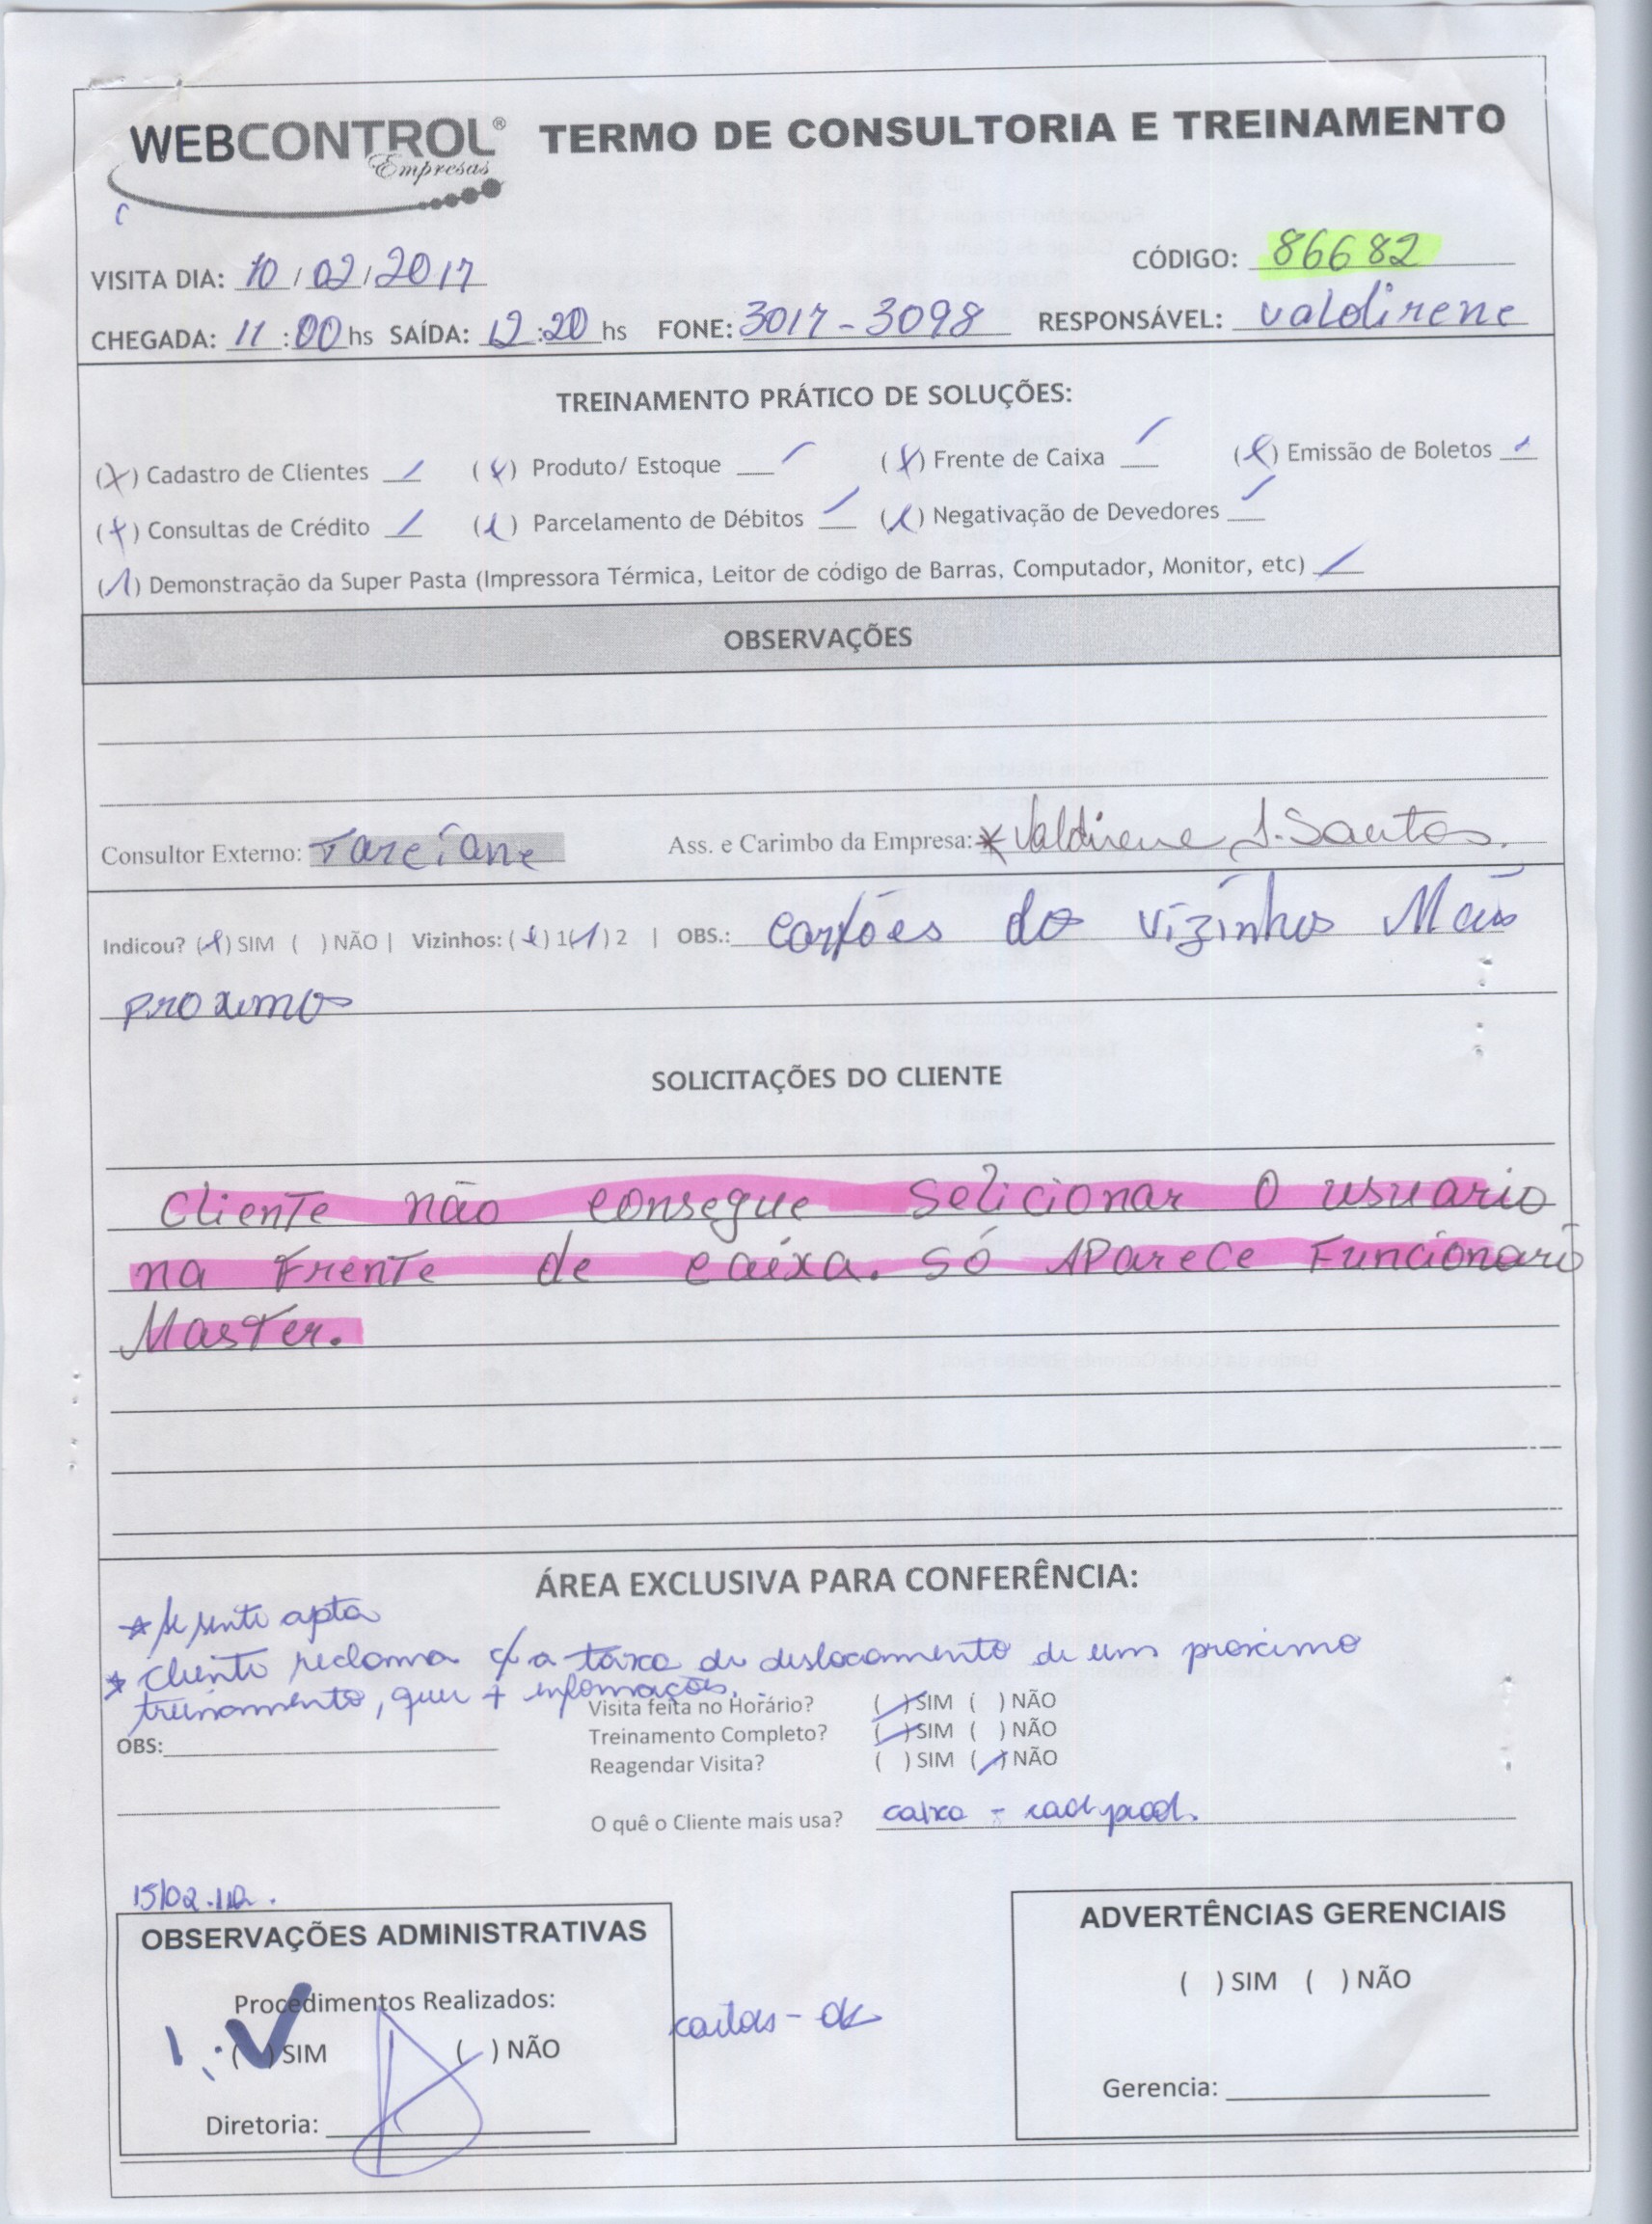 WEBCONTROL® Empresas
TERMO DE CONSULTORIA E TREINAMENTO
CÓDIGO: 86682
VISITA DIA: 10/02/2017
CHEGADA: 11:00 hs SAÍDA: 12:20 hs FONE: 3017-3098 RESPONSÁVEL: valdirene
TREINAMENTO PRÁTICO DE SOLUÇÕES:
(X) Cadastro de Clientes (X) Produto/ Estoque (X) Frente de Caixa (X) Emissão de Boletos
(X) Consultas de Crédito (X) Parcelamento de Débitos (X) Negativação de Devedores
(X) Demonstração da Super Pasta (Impressora Térmica, Leitor de código de Barras, Computador, Monitor, etc)
OBSERVAÇÕES
Consultor Externo: Tarciane Ass. e Carimbo da Empresa: * Valdirene J. Santos.
Indicou? (X) SIM ( ) NÃO | Vizinhos: (X) 1 (X) 2 | OBS.: cartões do vizinhos Mais
proximos
SOLICITAÇÕES DO CLIENTE
Cliente não consegue Selicionar o usuario
na Frente de caixa. só Aparece Funcionario
Master.
ÁREA EXCLUSIVA PARA CONFERÊNCIA:
* se sente apta
* cliente reclama c/ a taxa de deslocamento de um proximo
treinamento, quer + informações.
Visita feita no Horário? (/) SIM ( ) NÃO
Treinamento Completo? (/) SIM ( ) NÃO
OBS:
Reagendar Visita? ( ) SIM (/) NÃO
O quê o Cliente mais usa? caixa - cad prod.
15/02
OBSERVAÇÕES ADMINISTRATIVAS
Procedimentos Realizados:
(✓) SIM ( ) NÃO
Diretoria:
cartas - ok
ADVERTÊNCIAS GERENCIAIS
( ) SIM ( ) NÃO
Gerencia: